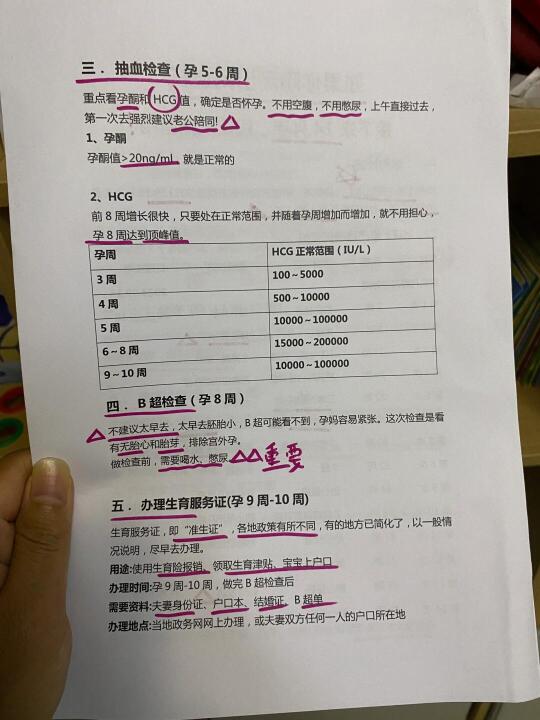 三．抽血检查（孕5-6周）
重点看孕酮和HCG值，确定是否怀孕。不用空腹，不用憋尿，上午直接过去，
第一次去强烈建议老公陪同!
1、孕酮
孕酮值>20ng/ml，就是正常的
2、HCG
前8周增长很快，只要处在正常范围，并随着孕周增加而增加，就不用担心，
孕8周达到顶峰值。
孕周 HCG 正常范围（IU/L）
3周 100～5000
4周 500～10000
5周 10000～100000
6～8周 15000～200000
9～10周 10000～100000
四．B超检查（孕8周）
不建议太早去，太早去胚胎小，B超可能看不到，孕妈容易紧张。这次检查是看
有无胎心和胎芽，排除宫外孕。
做检查前，需要喝水、憋尿 重要
五．办理生育服务证(孕9周-10周)
生育服务证，即“准生证”，各地政策有所不同，有的地方已简化了，以一般情
况说明，尽早去办理。
用途:使用生育险报销、领取生育津贴、宝宝上户口
办理时间:孕9周-10周，做完B超检查后
需要资料:夫妻身份证、户口本、结婚证、B超单
办理地点:当地政务网网上办理，或夫妻双方任何一人的户口所在地